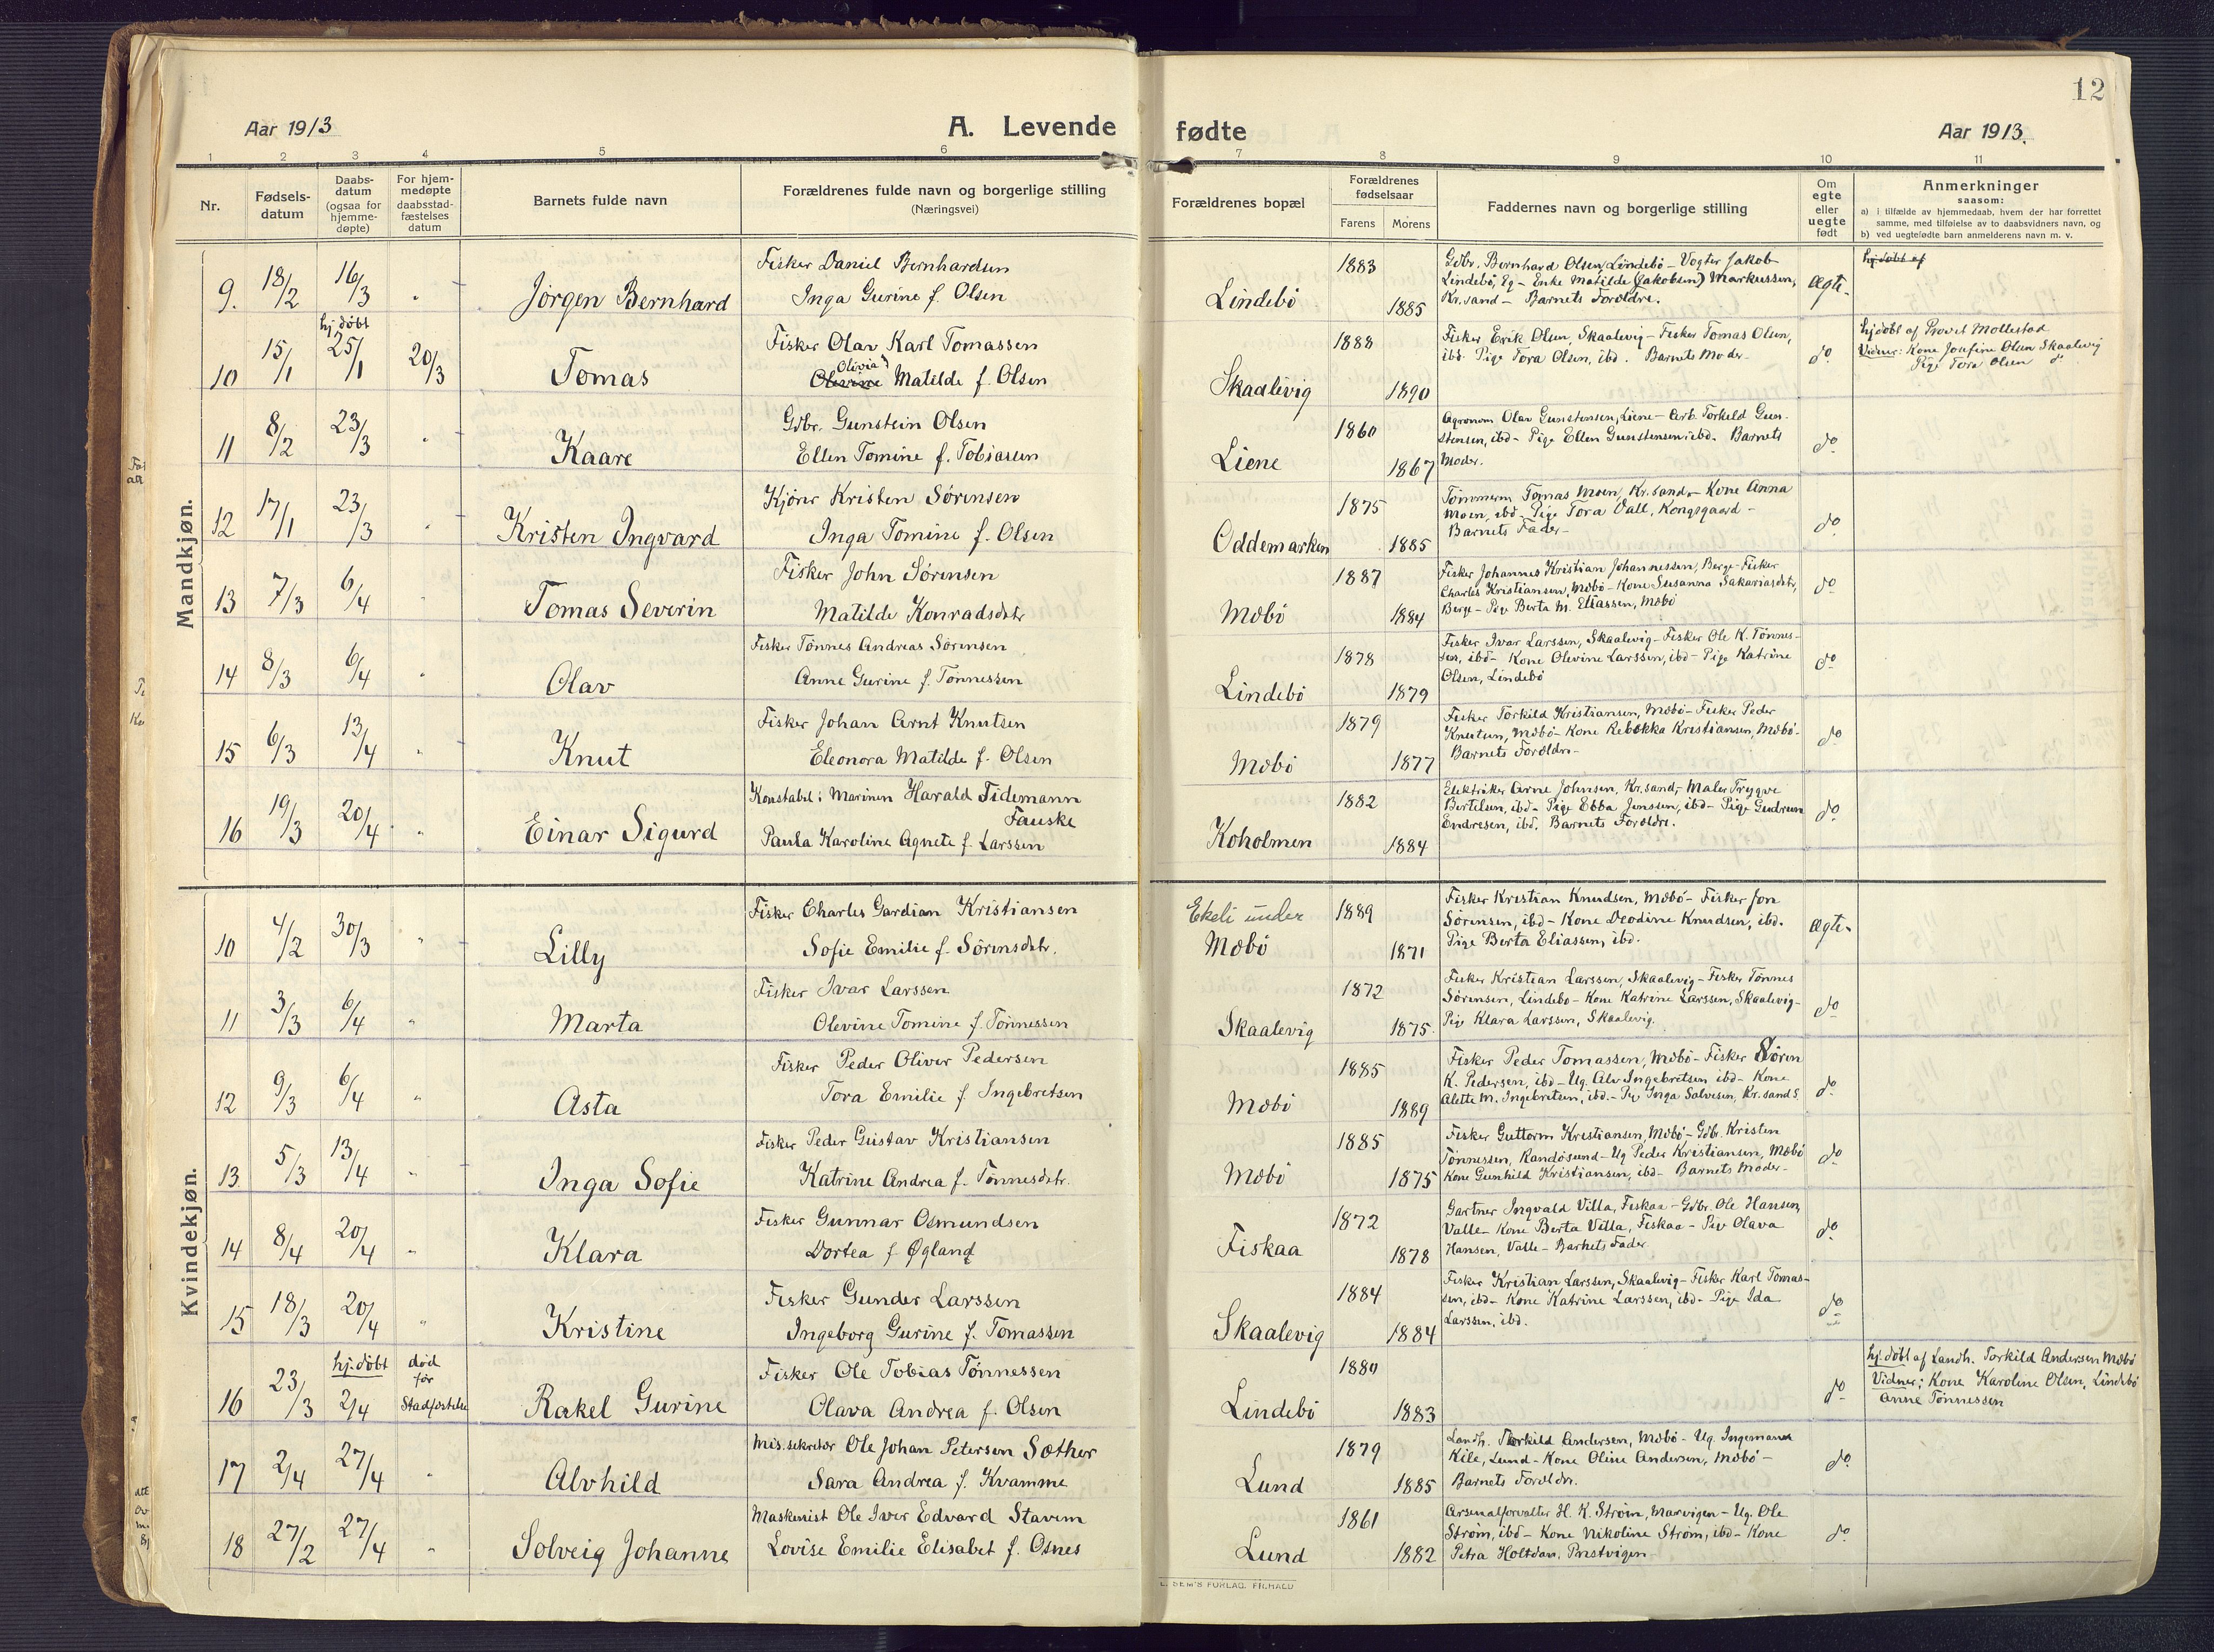 12
Aar 1913
A. Levende fødte
Aar 1913.
1 2 3 4 5 6 7 8 9 10 11
Nr.
Fødsels-
datum
Daabs-
datum
(ogsaa for
hjemme-
døpte)
For hjem-
medøpte
daabsstad-
fæstelses
datum
Barnets fulde navn
Forældrenes fulde navn og borgerlige stilling
(Næringsvei)
Forældrenes bopæl
Forældrenes
fødselsaar
Farens Morens
Faddernes navn og borgerlige stilling
Om
egte
eller
uegte
født
Anmerkninger
saasom:
a) i tilfælde av hjemmedaab, hvem der har forrettet
samme, med tilføielse av to daabsvidners navn, og
b) ved uegtefødte barn anmelderens navn m. v.
Mandkjøn.
9. 18/2 16/3 " Jörgen Bernhard
Fisker Daniel Bernhardsen
Inga Gurine f. Olsen
Lindebö 1883 1885
Gdbr. Bernhard Olsen, Lindebö - Vogter Jakob
Lindebö, Eg - Enke Matilde (Jakobsen) Markussen,
Kr.sand - Barnets Forældre.
Ægte.
hjdöbt af
10 15/1 hj.döbt 25/1 20/3 Tomas
Fisker Olav Karl Tomassen
Olivia
Olevine Matilde f. Olsen
Skaalevig 1888 1890
Fisker Erik Olsen, Skaalevig - Fisker Tomas Olsen,
ibd. Pige Tora Olsen, ibd. Barnets Moder -
do
hjdöbt af Provst Mollestad
Vidner: Kone Josefine Olsen Skaalevig
Pige Tora Olsen do
11 8/2 23/3 " Kaare
Gdbr. Gunstein Olsen
Ellen Tomine f. Tobiasen
Liene 1860 1867
Agronom Olav Gunstensen, Liene - Arb. Torkeld Gun-
stensen, ibd - Pige Ellen Gunstensen, ibd. Barnets
Moder.
do
12 17/1 23/3 " Kristen Ingvard
Kjörer Kristen Sörensen
Inga Tomine f. Olsen
Oddemarken 1875 1885
Tömmerm Tomas Moen, Kr.sand - Kone Anna
Moen, ibd - Pige Tora Vall, Kongsgaard -
Barnets Fader -
do
13 7/3 6/4 " Tomas Severin
Fisker John Sörensen
Matilde Konradsdtr
Mæbö 1887 1884
Fisker Johannes Kristian Johannessen, Berge - Fisker
Charles Kristiansen, Mæbö - Kone Susanna Sakariasdtr,
Berge - Pige Berta M. Eliassen, Mæbö
do
14 8/3 6/4 " Olav
Fisker Tönnes Andreas Sörensen
Anne Gurine f. Tönnessen
Lindebö 1878 1879
Fisker Ivar Larssen, Skaalevig - Fisker Ole K. Tönnes-
sen, ibd - Kone Olevine Larssen, ibd - Pige Katrine
Olsen, Lindebö
do
15 6/3 13/4 " Knut
Fisker Johan Arnt Knutsen
Eleonora Matilde f. Olsen
Mæbö 1879 1877
Fisker Torkild Kristiansen, Mæbö - Fisker Peder
Knutsen, Mæbö - Kone Rebekka Kristiansen, Mæbö -
Barnets Forældre -
do
16 19/3 20/4 " Einar Sigurd
Konstabel i Marinen Harald Tidemann
Fauske
Paula Karoline Agnete f. Larssen
Koholmen 1882 1884
Elektriker Arne Johnsen, Kr.sand, Maler Trygve
Bertilsen, ibd - Pige Ebba Jenssen, ibd - Pige Gudrun
Endresen, ibd. Barnets Forældre.
do
Kvindekjøn.
10 4/2 30/3 " Lilly
Fisker Charles Gardian Kristiansen
Sofie Emilie f. Sörensdtr.
Ekeli under
Mæbö 1889 1871
Fisker Kristian Knudsen, Mæbö - Fisker Jon
Sörensen, ibd - Kone Deodine Knudsen, ibd.
Pige Berta Eliassen, ibd.
ægte.
11 3/3 6/4 " Marta
Fisker Ivar Larssen
Olevine Tomine f. Tönnessen
Skaalevig 1872 1875
Fisker Kristian Larssen, Skaalevig - Fisker Tönnes
Sörensen, Lindebö - Kone Katrine Larssen, Skaalevig -
Pige Klara Larssen, Skaalevig.
do
12 9/3 6/4 " Asta
Fisker Peder Oliver Pedersen
Tora Emilie f Ingebretsen
Mæbö 1885 1889
Fisker Peder Tomassen, Mæbö - Fisker Sören
K. Pedersen, ibd - Ug. Alv Ingebretsen ibd - Kone
Alette M. Ingebretsen, ibd. - Pige Inga Salvesen, Kr.sand S.
do
13 5/3 13/4 " Inga Sofie
Fisker Peder Gustav Kristiansen
Katrine Andrea f. Tönnesdtr.
Mæbö 1885 1875
Fisker Guttorm Kristiansen, Mæbö - Gdbr. Kristen
Tönnessen, Randösund - Ug Peder Kristiansen, Mæbö
Kone Gunhild Kristiansen, ibd - Barnets Moder -
do
14 8/4 20/4 " Klara
Fisker Gunnar Osmundsen
Dortea f Øgland
Fiskaa 1872 1878
Gartner Ingvald Villa, Fiskaa - Gdbr. Ole Hansen,
Valle - Kone Berta Villa, Fiskaa - Pige Olava
Hansen, Valle - Barnets Fader
do
15 18/3 20/4 " Kristine
Fisker Gunder Larssen
Ingeborg Gurine f. Tomassen
Skaalevig 1884 1884
Fisker Kristian Larssen, Skaalevig - Fisker Karl Tomas-
sen, ibd - Kone Katrine Larssen, ibd - Pige Ida
Larssen, ibd.
do
16 23/3 hj.döbt 2/4 død før Stadfæstelse Rakel Gurine
Fisker Ole Tobias Tönnessen
Olava Andrea f. Olsen
Lindebö 1880 1883
do
hj.döbt af Landh. Torkild Andersen Mæbö
Vidner: Kone Karoline Olsen, Lindebö
Anne Tönnessen
17 2/4 27/4 " Alvhild
Mis.sekretær Ole Johan Petersen Sæther
Sara Andrea f. Kvamme
Lund 1879 1885
Landh. Torkild Andersen, Mæbö - Ug. Ingemann
Kile, Lund - Kone Oline Andersen, Mæbö -
Barnets Forældre.
do
18 27/2 27/4 " Solveig Johanne
Maskinist Ole Iver Edvard Stavem
Lovise Emilie Elisabet f. Osnes
Lund 1861 1882
Arsenalforvalter H. K. Ström, Marvigen - Ug. Ole
Ström, ibd - Kone Nikoline Ström, ibd - Kone
Petra Holtdan, Prestvigen -
do